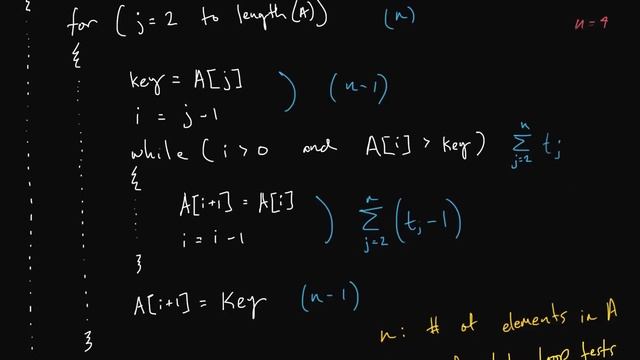 for ( j=2 to length(A)) (n) n = 4
{
key = A[j] ) (n-1)
i = j-1
while ( i>0 and A[i] > key) n∑j=2 tj
{
A[i+1] = A[i] ) n∑j=2 (tj-1)
i = i-1
}
A[i+1] = Key (n-1)
n: # of elements in A
}
loop tests